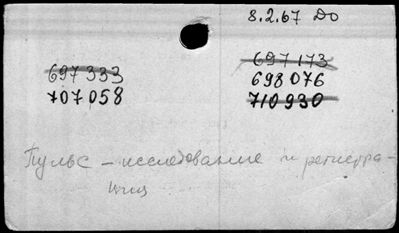 8.2.67 До
697333
707058
697173
698076
710930
Пульс – исследование и регистра-
ция